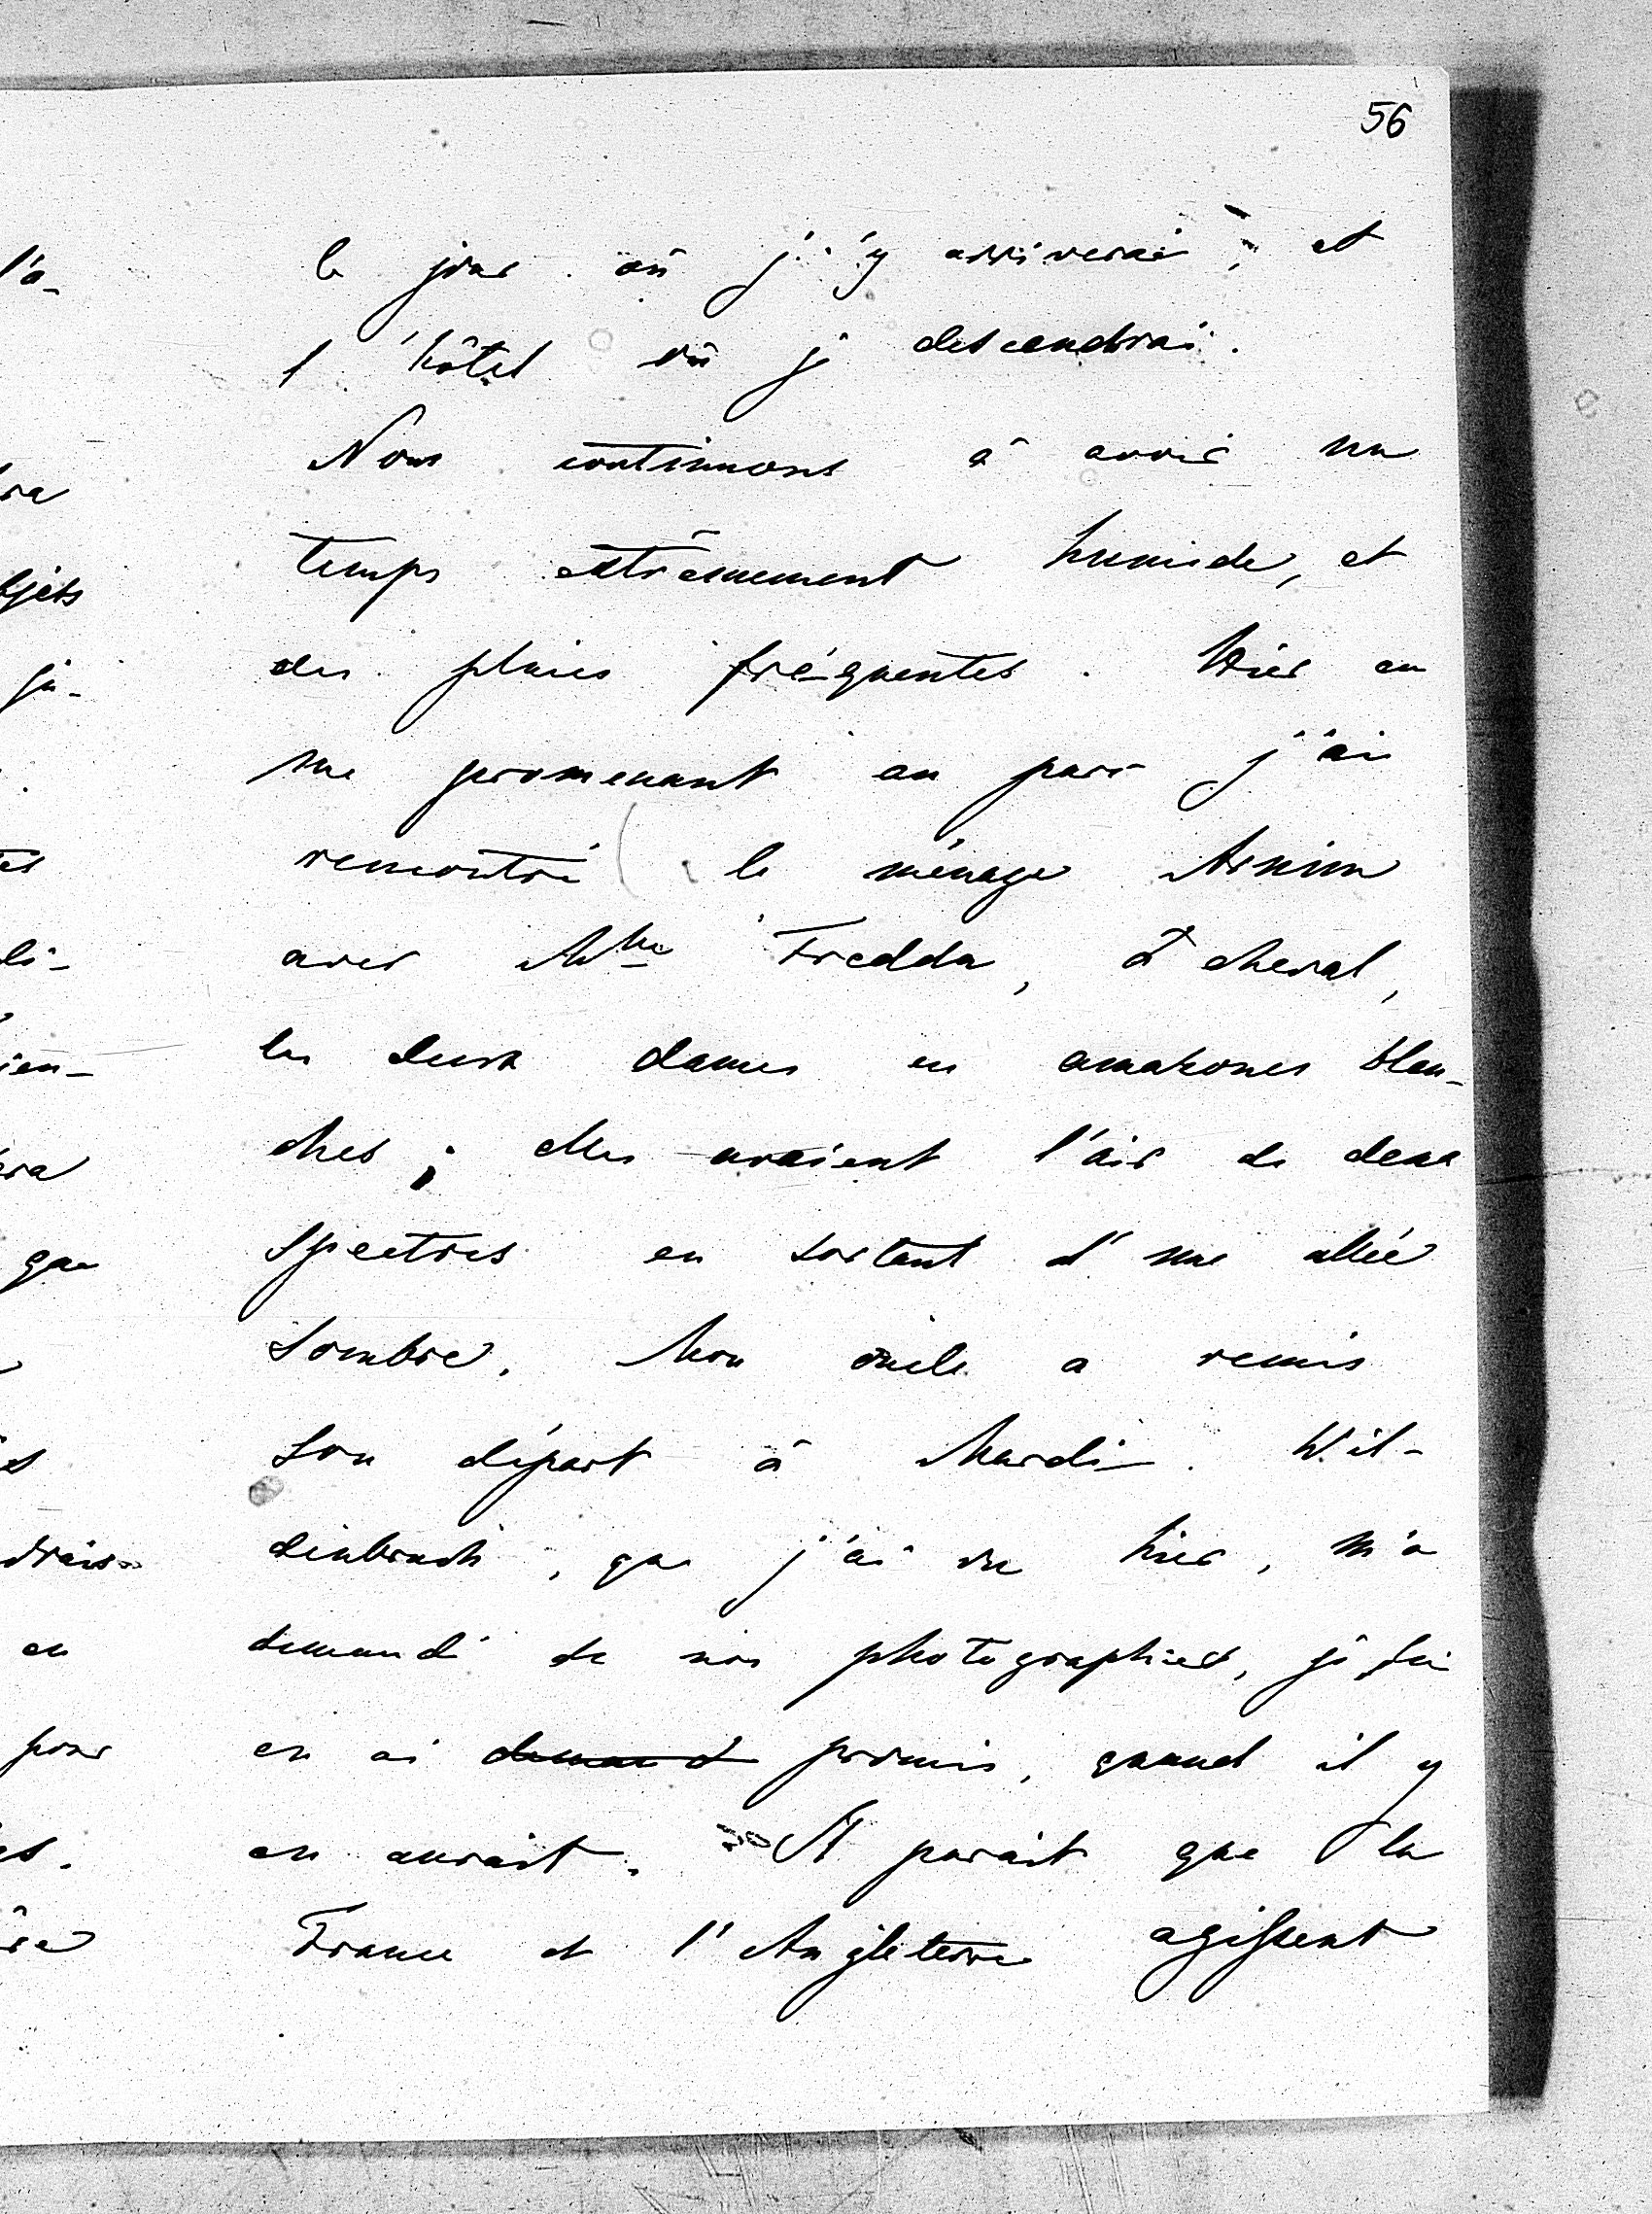 56
le jour où j'y arriverai, et
l'hôtel où je descendrai.
Nous continuons à avoir un
temps extrêmement humide, et
des pluies fréquentes. Hier en
me promenant au parc j'ai
rencontré le ménage Arnim
avec Mme Fredda, à cheval,
les deux dames en amazones blan-
ches; elles avaient l'air de deux
spectres en sortant d'une allée
sombre. Mon oncle a remis
son départ à Mardi. Wil-
denbruch, que j'ai vu hier, m'a
demandé de nos photographies, je lui
en ai demandé promis, quand il y
en aurait. Il parait que la
France et l'Angleterre agissent
l'a-
bjets
ju-
li-
ien-
que
en
pour